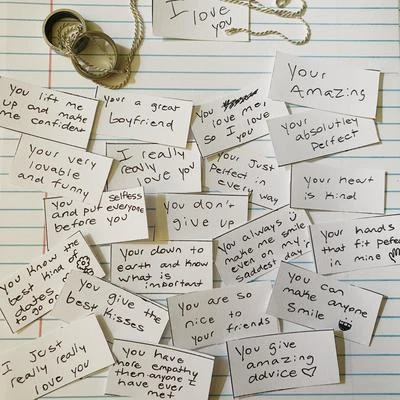 I love
you
Your
Amazing
You lift me
up and make
me confident
Your a great
boyfriend
You
love me,
so I love
you
Your
absolutley
perfect
Your very
lovable
and funny
I really
really
love you
Your Just
perfect in
every way
Your heart
is kind
You selfless
and put everyone
before you
You don't
give up
You always
make me smile
even on my
saddest day's
Your hands
that fit pefect
in mine
You know the
best kind of
dates
to go on
Your down to
earth and know
what is
important
You give the
best kisses
You are so
nice to
your friends
You can
make anyone
smile
I Just
really really
love you
You have
more empathy
then anyone I
have ever
met
You give
amazing
advice